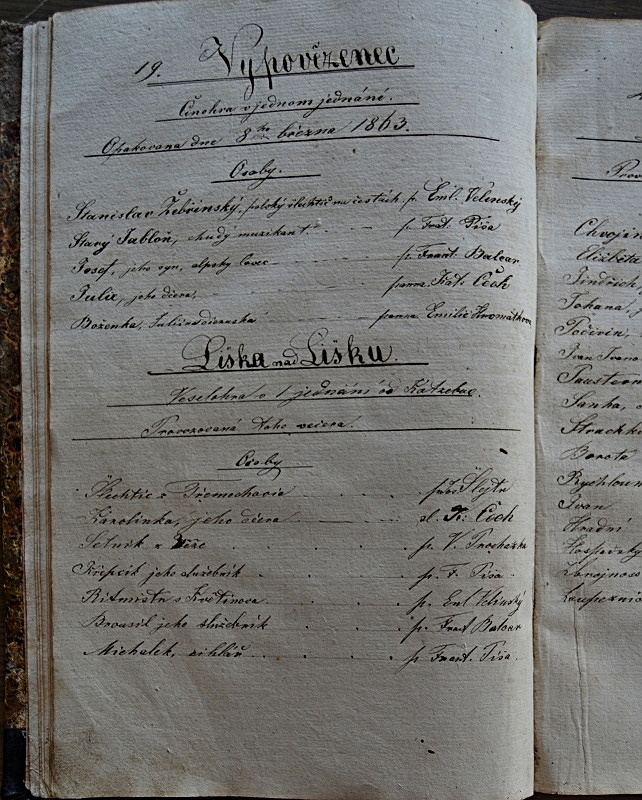 19. Vypovězenec
Činohra v jednom jednání.
Opakovana dne 8ho března 1863.
Osoby.
Stanislav Žebřinský, polský šlechtic na cestách p. Eml. Velinský
Starý Jabloň, chudý muzikant p. Frat. Píša
Josef, jeho syn, alpský lovec p. Frant. Balcar
Julie, jeho dcera, panna Kat. Čech
Boženka, panna Emilie Hromátkova
Liška nad Lišku.
Veselohra v 1 jednání od Kotzebue.
Provozovaná toho večera.
Osoby
Šlechtic z
Karolinka, jeho dcera sl. K. Čech
Setník z p. V. Prochazka
Křepčík jeho služebník p. F. Píša
Ritmistr z Květinova p. Eml Velinský
Brousil jeho služebník p. Frant Balcar
Michalek, cihlář p Frant. Píša.
Prov
Chvojín
Eližběta
Jindřich,
Johana, j
Počivin,
Ivan
Sanka,
Strachk
Borota
Rychlow
Ivan
Hradní